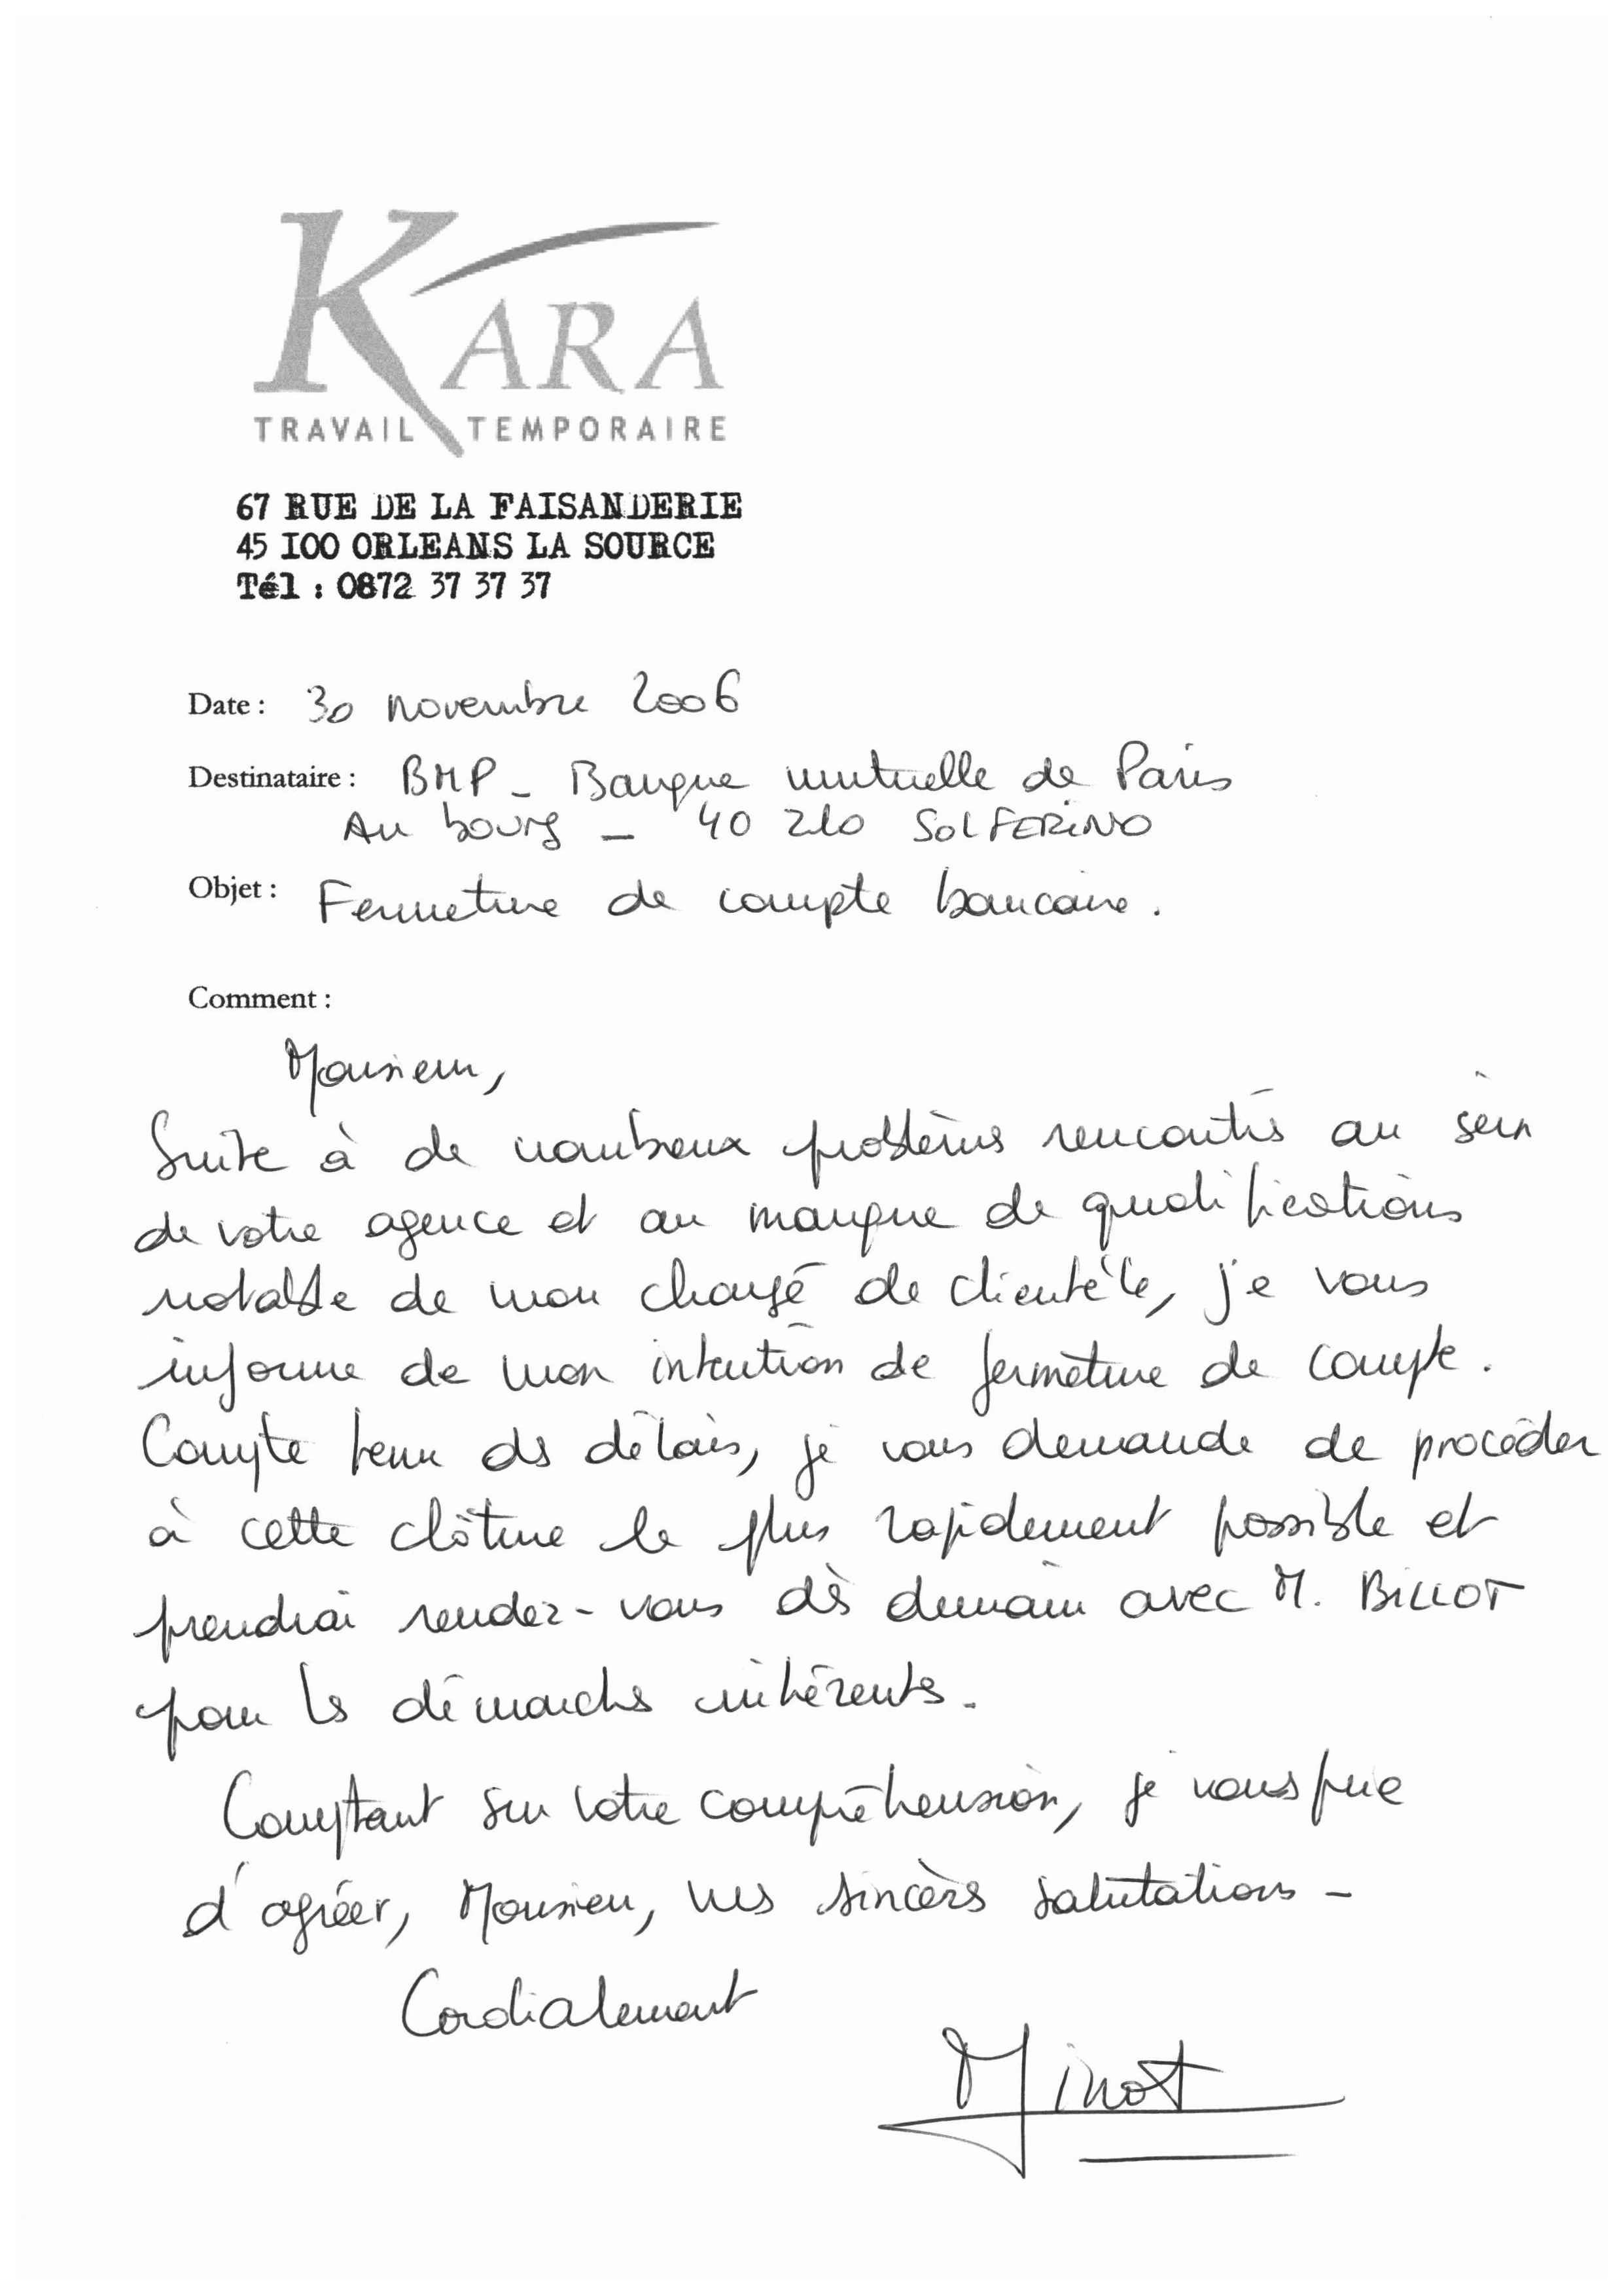 KARA
TRAVAIL TEMPORAIRE
67 RUE DE LA FAISANDERIE
45 100 ORLEANS LA SOURCE
Tél : 0872 37 37 37
Date : 30 novembre 2006
Destinataire : BMP - Banque mutuelle de Paris
Au bourg - 40 210 SOLFERINO
Objet : Fermeture de compte bancaire.
Comment :
Monsieur,
Suite à de nombreux problèmes rencontrés au sein
de votre agence et au manque de qualifications
notable de mon chargé de clientèle, je vous
informe de mon intention de fermeture de compte.
Compte tenu des délais, je vous demande de procéder
à cette clôture le plus rapidement possible et
prendrai rendez-vous dès demain avec M. BILLOT
pour les démarches inhérentes.
Comptant sur votre compréhension, je vous prie
d'agréer, Monsieur, mes sincères salutations -
Cordialement
Minot